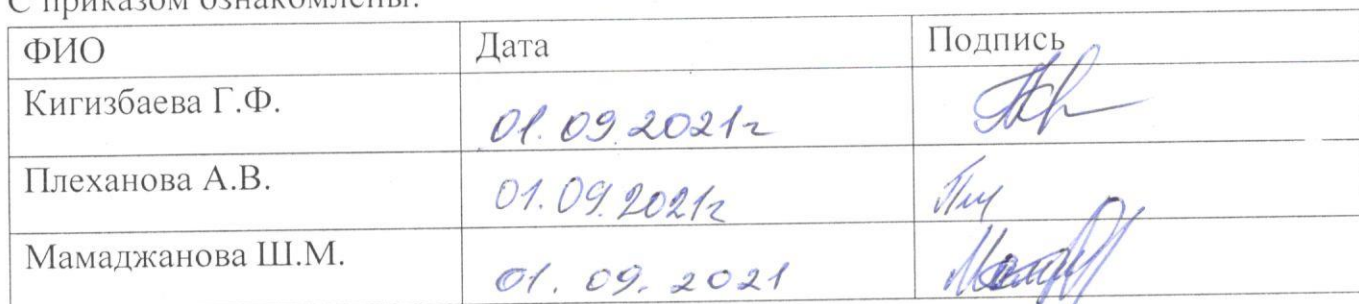 С приказом ознакомлены:
ФИО Дата Подпись
Кигизбаева Г.Ф. 01.09.2021г
Плеханова А.В. 01.09.2021г
Мамаджанова Ш.М. 01.09.2021